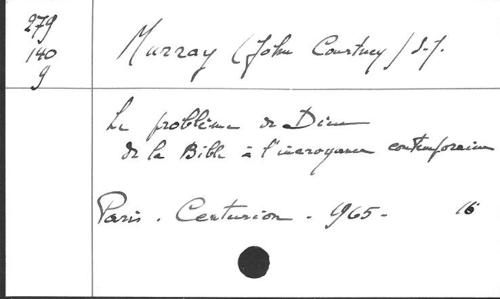 279
140
9
Murray (John Courtney) s.j.
Le problème de Dieu
de la Bible à l'incroyance contemporaine
Paris. Centurion. 1965- 16